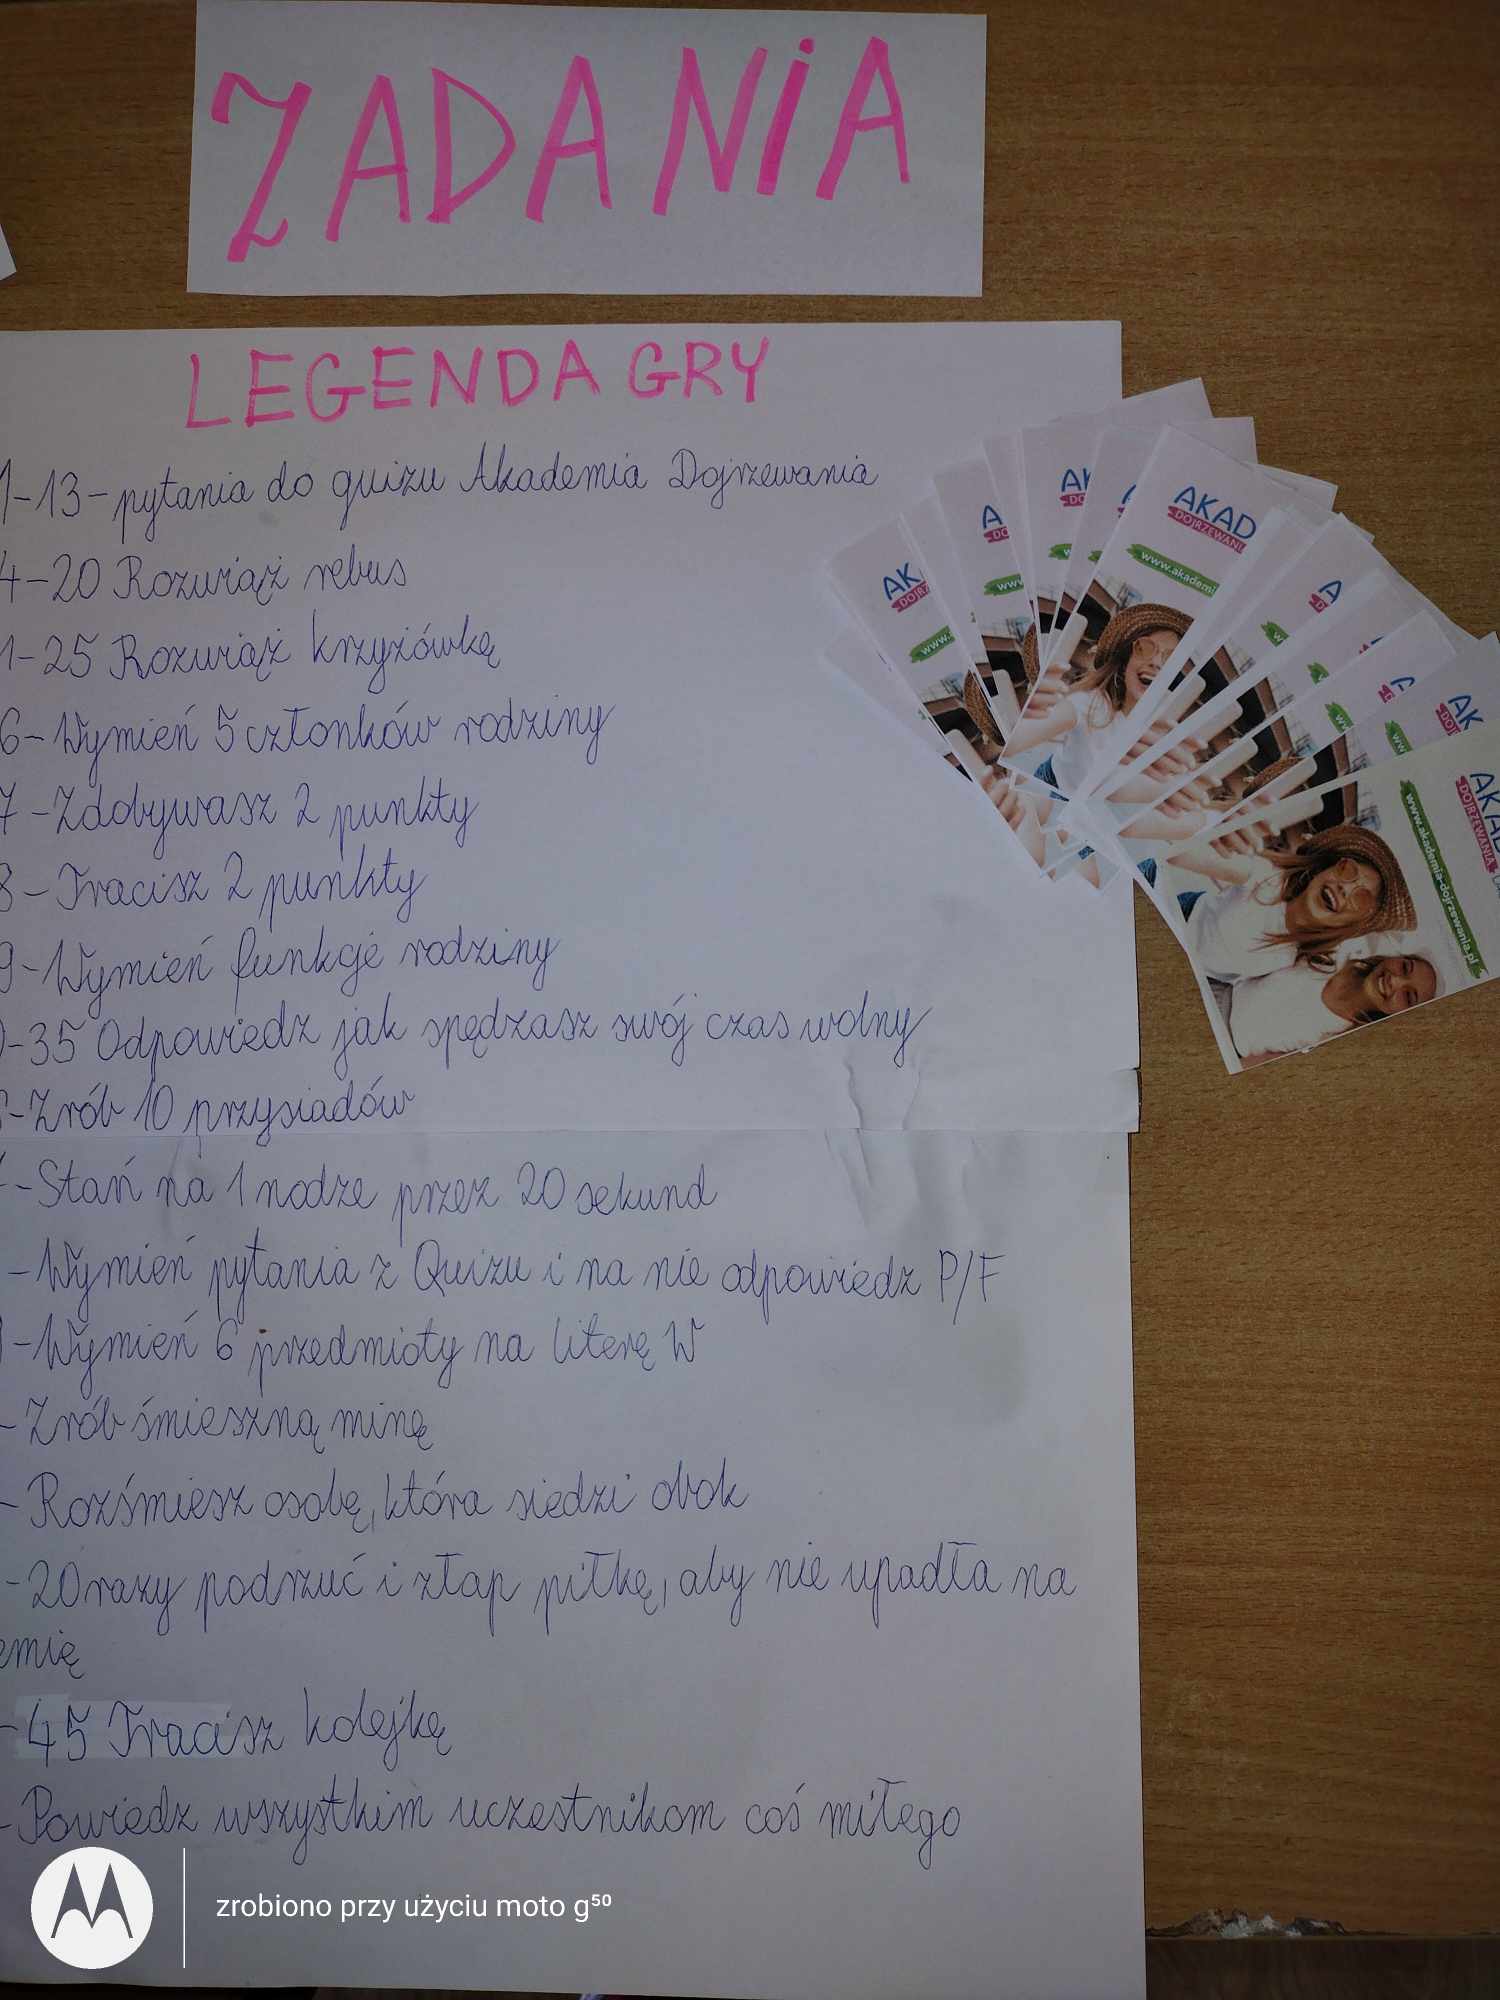 ZADANIA
LEGENDA GRY
1-13- pytania do quizu Akademia Dojrzewania
4-20 Rozwiąż rebus
1-25 Rozwiąż krzyżówkę
6-Wymień 5 członków rodziny
7-Zdobywasz 2 punkty
8-Tracisz 2 punkty
9-Wymień funkcje rodziny
-35 Odpowiedz jak spędzasz swój czas wolny
-Zrób 10 przysiadów
-Stań na 1 nodze przez 20 sekund
-Wymień pytania z Quizu i na nie odpowiedz P/F
-Wymień 6 przedmioty na literę W
-Zrób śmieszną minę
-Rozśmiesz osobę, która siedzi obok
-20 razy podrzuć i złap piłkę, aby nie upadła na
emię
-45 Tracisz kolejkę
-Powiedz wszystkim uczestnikom coś miłego
AKAD
DOJRZEWANI
www.akademi
AK
DOJRZ
www.
A
DO
www
AK
DO
A
D
AK
DOJ
AKA
DOJRZEWANIA
www.akademia-dojrzewania.pl
zrobiono przy użyciu moto g⁵⁰